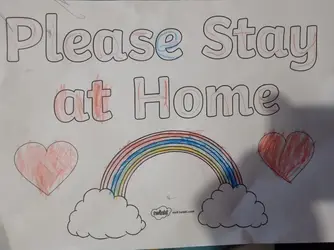 Please Stay
at Home
twinkl